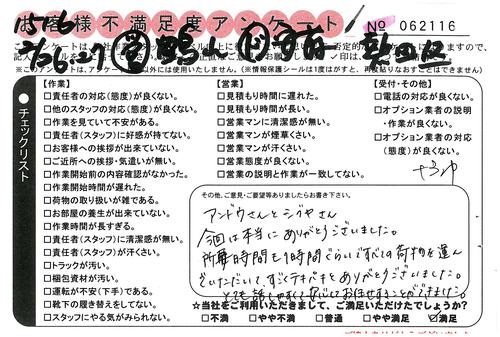 お客様不満足度アンケート
No 062116
チェックリスト
【作業】
□責任者の対応(態度)が良くない。
□他のスタッフの対応(態度)が良くない。
□作業を見ていて不安がある。
□責任者(スタッフ)に好感が持てない。
□お客様への挨拶が出来ていない。
□ご近所への挨拶・気遣いが無い。
□作業開始前の内容確認がなかった。
□作業開始時間が遅れた。
□荷物の取り扱いが雑である。
□お部屋の養生が出来ていない。
□作業時間が長すぎる。
□責任者(スタッフ)に清潔感が無い。
□責任者(スタッフ)が汗くさい。
□トラックが汚い。
□梱包資材が汚い。
□運転が不安(下手)である。
□靴下の履き替えをしてない。
□スタッフにやる気がみられない。
【営業】
□見積もり時間に遅れた。
□見積もり時間が長い。
□営業マンに清潔感が無い。
□営業マンが煙草くさい。
□営業マンが汗くさい。
□営業態度が良くない。
□営業の説明と作業が一致してない。
【受付・その他】
□電話の対応が良くない。
□オプション業者の説明
・作業が良くない。
□オプション業者の対応
(態度)が良くない。
その他、ご意見・ご要望等ありましたらお書き下さい。
アンドウさんとジヲヤさん
今回は本当にありがとうございました。
所要時間も1時間ぐらいですべての荷物を運ん
でいただいて、すごくテキパキとありがとうございました。
とても話しやすくて安心してお任せすることができました。
☆当社をご利用いただきまして、ご満足いただけたでしょうか?
□不満 □やや不満 □普通 □やや満足 ☑満足